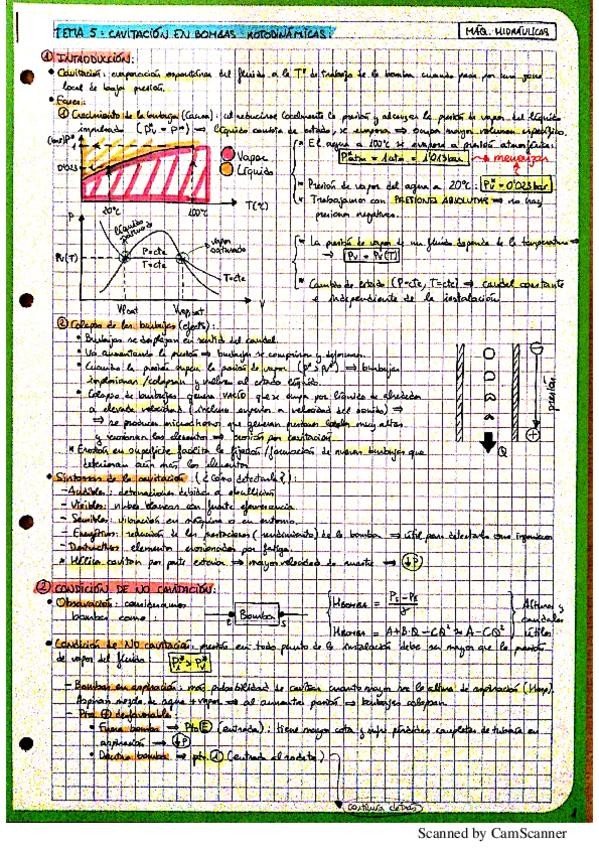 TEMA 5: CAVITACIÓN EN BOMBAS ROTODINÁMICAS:
MÁQ. HIDRÁULICAS
① INTRODUCCIÓN:
• Cavitación: evaporación espontánea del fluido a la Tª de trabajo de la bomba cuando pasa por una zona
local de baja presión.
• Fases:
① Crecimiento de la burbuja (causa): al reducirse localmente la presión y alcanzar la presión de vapor del líquido
impulsado ⇒ líquido cambia de estado, se evapora ⇒ ocupa mayor volumen específico.
* El agua a 100℃ se evapora a presión atmosférica:
P*atm = 1 atm = 1'013 bar → memorizar
* Presión de vapor del agua a 20℃: Pv* = 0'023 bar
* Trabajamos con PRESIONES ABSOLUTAS ⇒ no hay
presiones negativas.
1
0'023
Vapor
Líquido
20℃ 100℃ T(℃)
P
Pv(T)
líquido saturado
P=cte
T=cte
vapor saturado
T=cte
V
* La presión de vapor de un fluido depende de la temperatura ⇒
⇒ Pv = Pv(T)
* Cambio de estado (P=cte, T=cte) ⇒ constante
e independiente de la instalación
② Colapso de las burbujas (efecto):
• Burbujas se desplazan en sentido del caudal.
• Va aumentando la presión ⇒ burbujas se comprimen y deforman.
• Cuando la presión supera la presión de vapor ⇒ burbujas
implosionan/colapsan y vuelven al estado líquido.
• Colapso de burbujas genera VACÍO que se ocupa por líquido de alrededor
a elevada velocidad (incluso superior a velocidad del sonido) ⇒
⇒ se producen que generan presiones locales muy altas
y erosionan los elementos ⇒ erosión por cavitación.
* Erosión en superficie facilita la fijación/formación de nuevas burbujas que
deterioran aún más los elementos
presión
Q
• Síntomas de la cavitación: (¿Cómo detectarla?):
- Audibles: detonaciones debidas a ebullición
- Visibles: nubes blancas con fuerte efervescencia
- Sensibles: vibración en máquina o su entorno.
- Energéticos: reducción de las prestaciones (rendimiento) de la bomba ⇒ útil para detectarla como ingenieros
- Destructivos: elementos erosionados por fatiga.
* Hélice cavitan por parte exterior ⇒ mayor velocidad de ⇒ ↓P
② CONDICIÓN DE NO CAVITACIÓN:
• Observación: consideramos
bombas como:
E Bomba S
H_BOMBA = (Ps - PE)/γ
H_BOMBA = A+B·Q-CQ² ≈ A-CQ²
Alturas y
caudales
útiles
• Condición de NO cavitación: presión en todo punto de la instalación debe ser mayor que la presión
de vapor del fluido: Pi* > Pv*
- Bombas en aspiración: más probabilidad de cavitar cuanto mayor sea la altura de aspiración (Hasp).
Aspiran mezcla de agua + vapor ⇒ al aumentar presión ⇒ burbujas colapsan.
- Pto. ⊕ desfavorable:
• Fuera bomba ⇒ Pto. E (entrada): tiene mayor cota y sufre pérdidas completas de tubería en
aspiración ⇒ ↓P
• Dentro bomba ⇒ pto. ① (entrada al rodete)
continúa detrás
Scanned by CamScanner